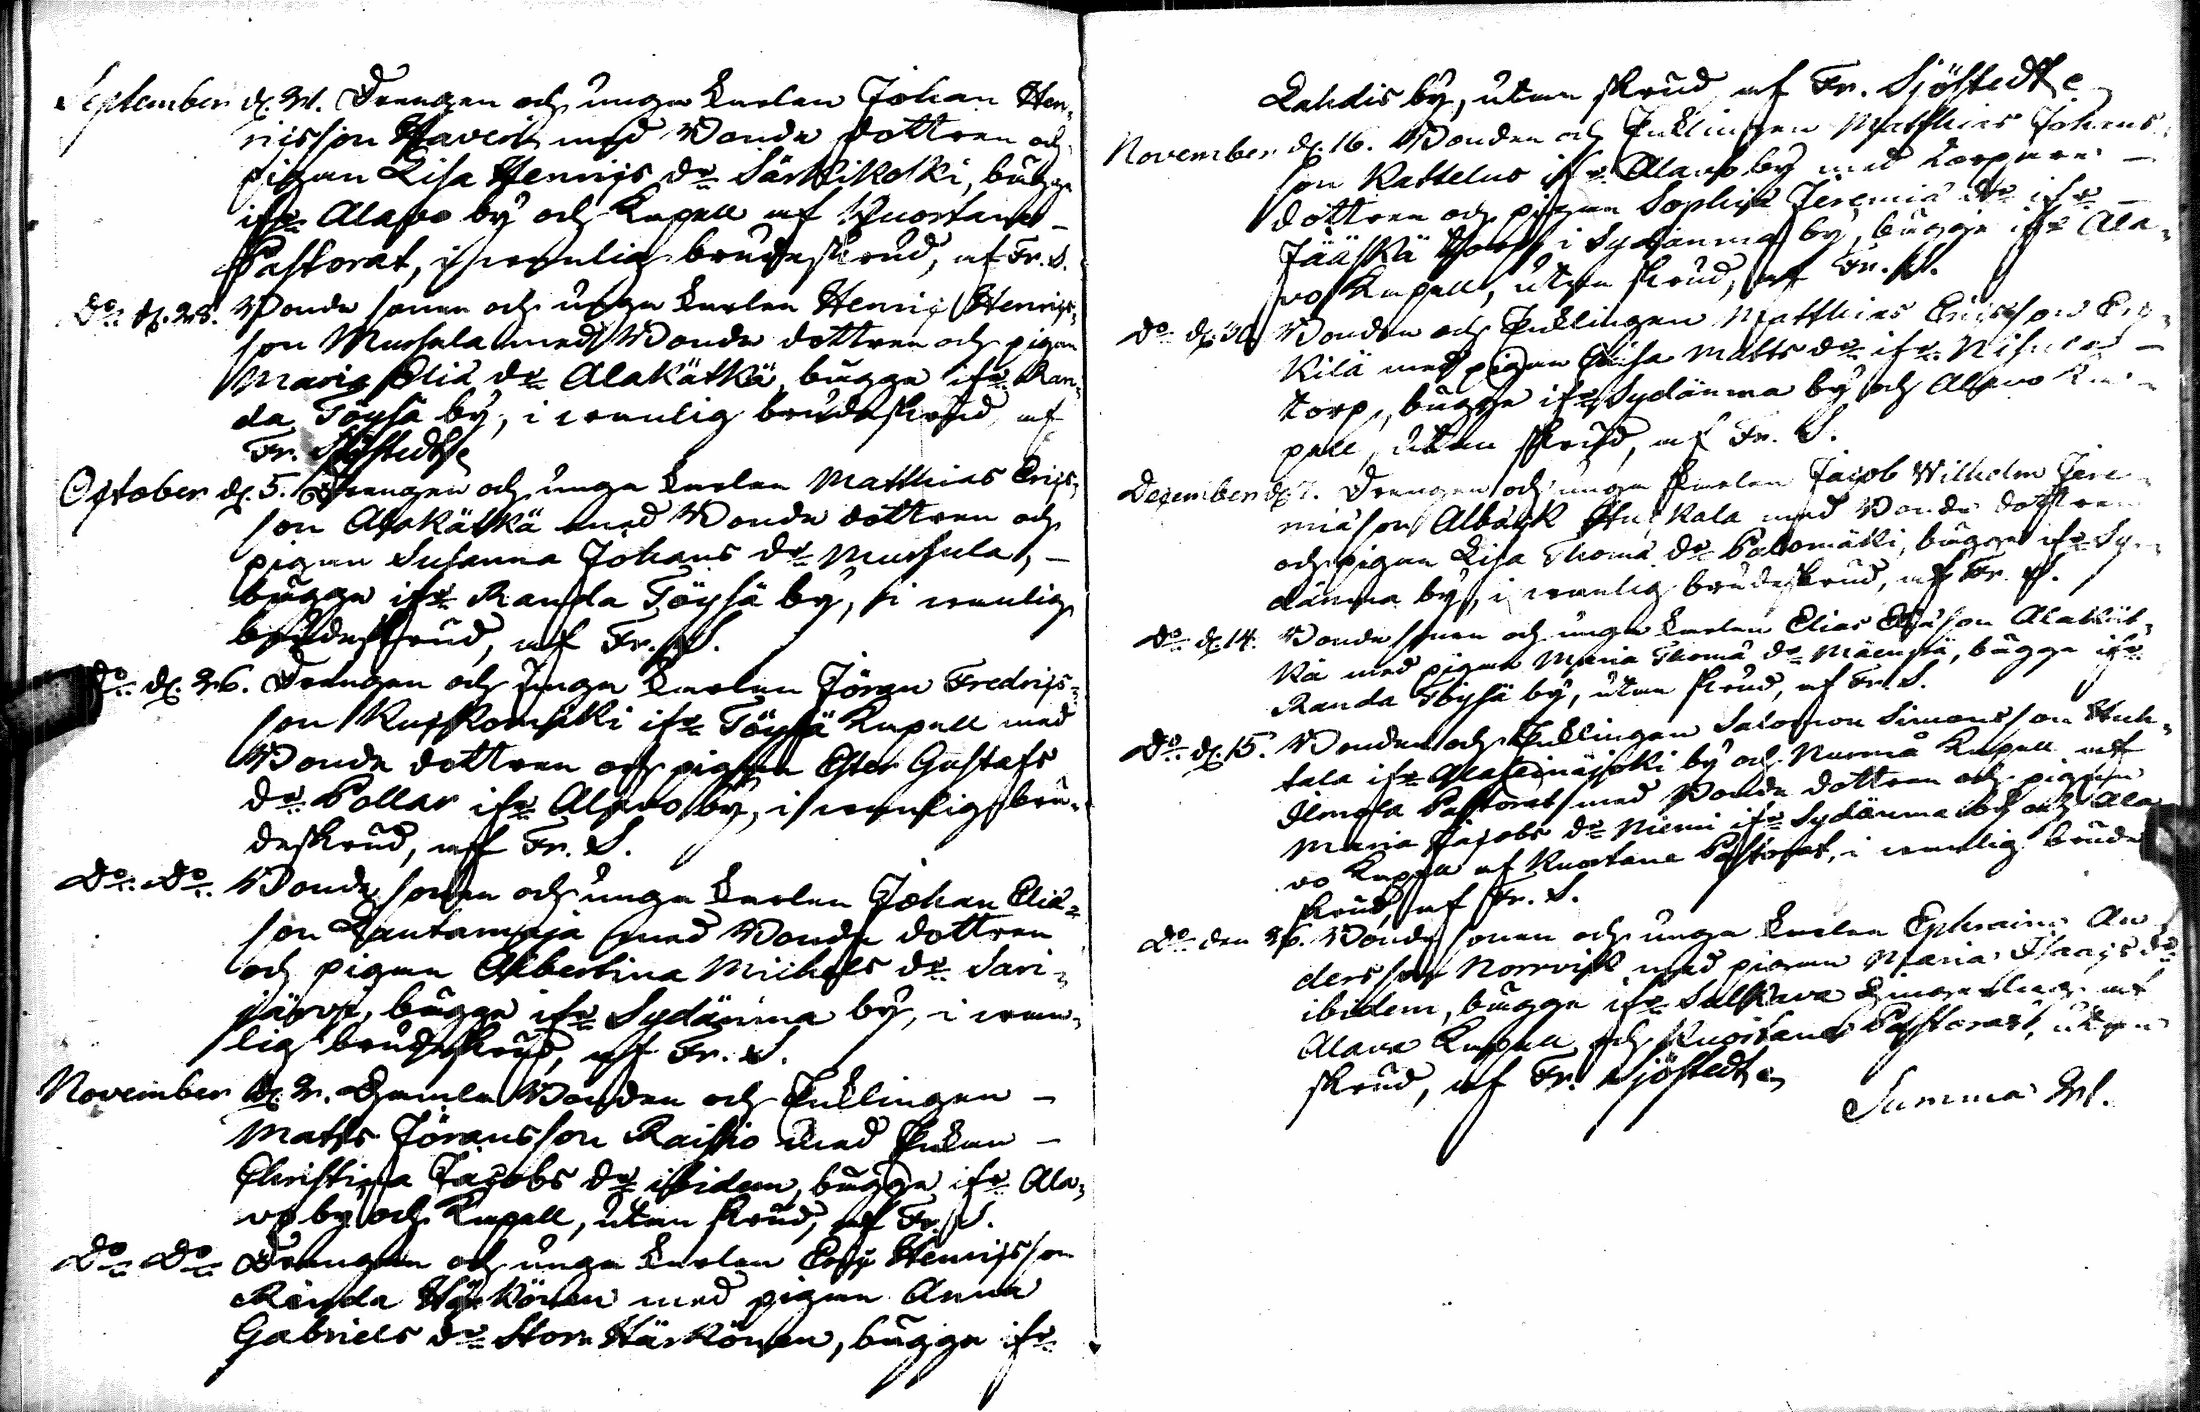 September d. 21. Drengen och unga Karlen Johan Hen-
ricsson Haveri med Bonde dottren och
pigan Lisa Henrics dr Särkikoski, bägge
ifr. Alavo by och Kapell af Kuortane
Pastorat, i vanlig brudeskrud, af Fr. S.
Do d. 28. Bonde sonen och unga Karlen Henric Henrics-
son Mursula med Bonde dottren och pigan
Maria Eliä dr Alakätkä, bägge ifr Ran-
da Töysä by, i vanlig brudeskrud, af
Fr. Sjöstedt
October d. 5. Drengen och unga Karlen Matthias Erics-
son Alakätkä med Bonde dottren och
pigan Susanna Johans dr Mursula,
bägge ifr Randa Töysä by, i vanlig
brudeskrud, af Fr. S.
Do d. 26. Drengen och unga Karlen Jöran Fredrics-
son Kuskomäki ifr Töysä Kapell med
Bonde dottren och pigan Ester Gustafs
dr Pollar ifr Alavo by, i vanlig bru-
deskrud, af Fr. S.
Do Do Bonde sonen och unga Karlen Johan Eliä-
son Rantamaja med Bonde dottren
och pigan Albertina Michels dr Sari-
järvi, bägge ifr Sydänma by, i van-
lig brudeskrud, af Fr. S.
November d. 2. Gamla Bonden och Enklingen
Matts Jöransson Raisio med Enkan
Christina Jacobs dr ibidem, bägge ifr Ala-
vo by och Kapell, utan skrud, af Fr. S.
Do Do Drengen och unga Karlen Eric Henricsson
Härkönen med pigan Anna
Gabriels dr Stor Härkönen, bägge ifr
Lahdis by, utan skrud af Fr. Sjöstedt
November d. 16. Bonden och Enklingen Matthias Johans-
son Kattelus ifr Alavo by med torpare
dottren och pigan Sophia Jeremiä dr ifr
Jääskä torp i Sydänma by, bägge ifr Ala-
vo Kapell, utan skrud, af Fr. S.
Do d. 30. Bonden och Enklingen Matthias Ericsson
kilä med pigan Caisa Matts dr ifr
torp, bägge ifr Sydänma by och Alavo Ka-
pell, utan skrud, af Fr. S.
December d. 7. Drengen och unga Karlen Jacob Wilhelm Jere-
miäson Albäck med Bonde dottren
och pigan Lisa Thomä dr Palomäki, bägge ifr Sy-
dänma by, i vanlig brudeskrud, af Fr. S.
Do d. 14. Bonde sonen och unga Karlen Elias Eliäson Alakät-
kä med pigan Maria Thomä dr Mäenpä, bägge ifr
Randa Töysä by, utan skrud, af Fr. S.
Do d. 15. Bonden och Enklingen Salomon Simonsson Huh-
tala ifr Alaseinäjoki by och Nurmo Kapell af
Ilmola Pastorat med Bonde dottren och pigan
Maria Jacobs dr Niemi ifr Sydänma by och Ala
vo Kapell af Kuortane Pastorat, i vanlig brude
skrud, af Fr. S.
Do den 26. Bonde sonen och unga Karlen Ephraim An
dersson Norrvik med pigan Maria Isaacs dr
ibidem, bägge ifr Sulkava af
Alavo Kapell och Kuortane Pastorat, utan
skrud, af Fr. Sjöstedt
Summa 21.